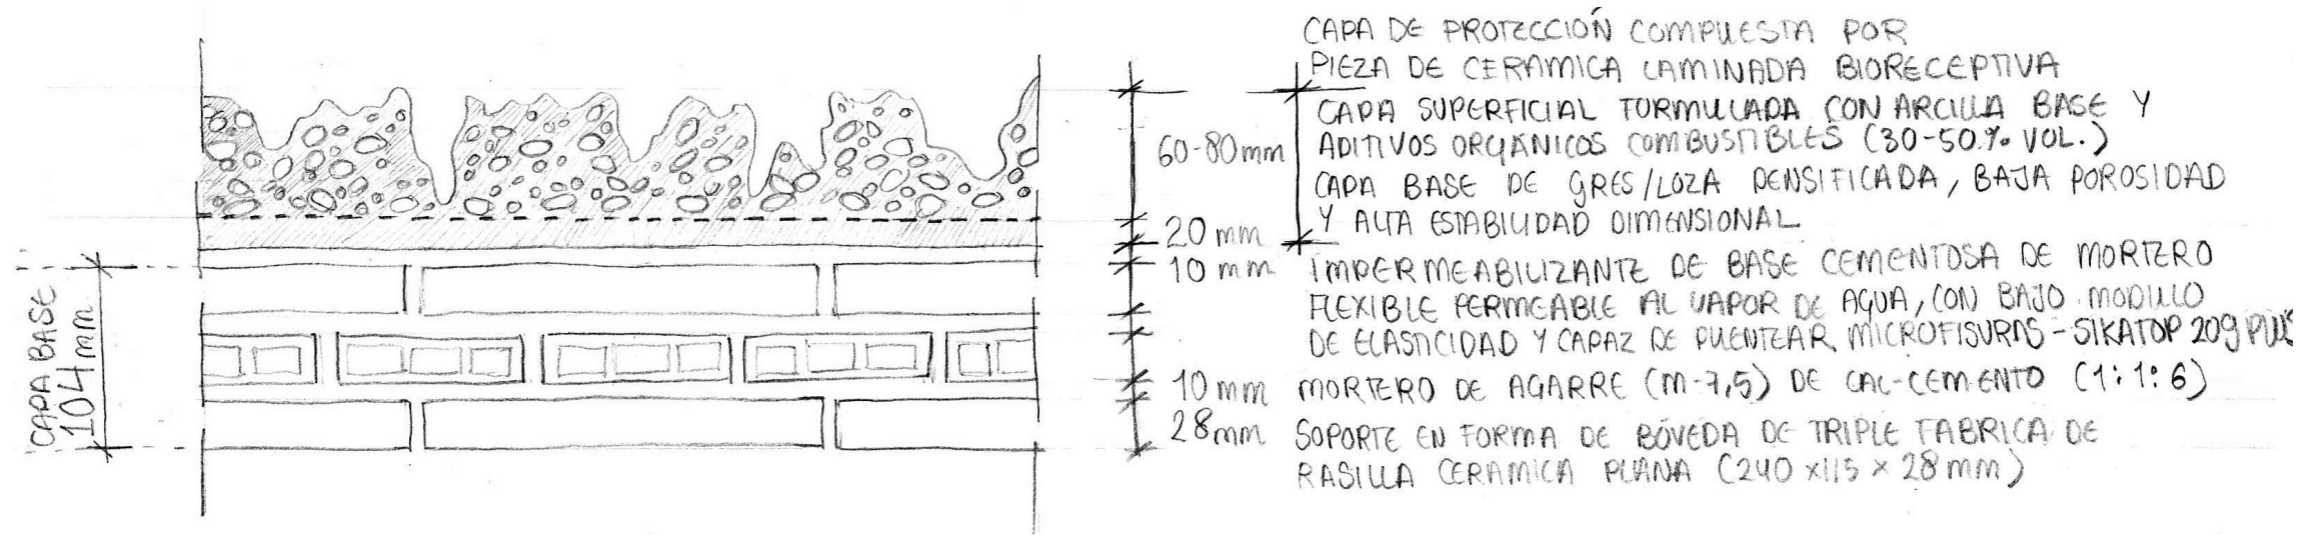 CAPA DE PROTECCIÓN COMPUESTA POR
PIEZA DE CERAMICA LAMINADA BIORECEPTIVA
CAPA SUPERFICIAL FORMULADA CON ARCILLA BASE Y
ADITIVOS ORGÁNICOS COMBUSTIBLES (30-50% VOL.)
CAPA BASE DE GRES/LOZA DENSIFICADA, BAJA POROSIDAD
Y ALTA ESTABILIDAD DIMENSIONAL
60-80mm
20 mm
10 mm
IMPERMEABILIZANTE DE BASE CEMENTOSA DE MORTERO
FLEXIBLE PERMEABLE AL VAPOR DE AGUA, CON BAJO MODULO
DE ELASTICIDAD Y CAPAZ DE PUENTEAR MICROFISURAS - SIKATOP 209 PLUS
10 mm
MORTERO DE AGARRE (M-7,5) DE CAL-CEMENTO (1:1:6)
28mm
SOPORTE EN FORMA DE BÓVEDA DE TRIPLE FABRICA DE
RASILLA CERAMICA PLANA (240 x115 x 28mm)
CAPA BASE
104mm